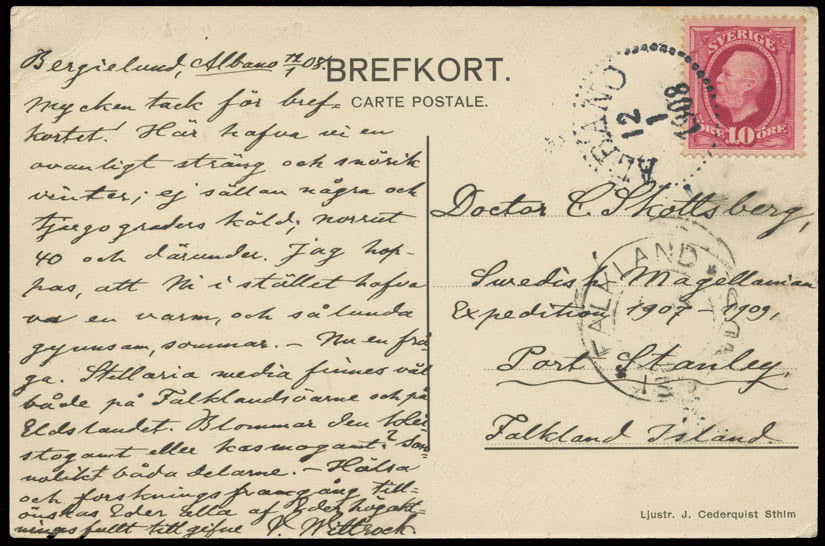 Bergielund, Albano 12/1 08.
Mycken tack för bref-
kortet! Här hafva vi en
ovanligt sträng och snörik
vinter; ej sällan några och
tjugo graders köld; norrut
40 och därunder. Jag hop-
pas, att Ni i stället hafva
en varm, och så lunda
gynnsam, sommar. – Nu en frå-
ga. Stellaria media finnes väl
både på Falklandsöarne och på
Eldslandet. Blommar den klei-
stogamt eller kasmogamt? San-
nolikt båda delarne. – Hälsa
och forskningsframgång till-
önskas Eder alla af Eder högakt-
ningsfullt tillgifne V. Wittrock.
BREFKORT.
CARTE POSTALE.
ALBANO
12
1
1908
SVERIGE
ÖRE 10 ÖRE
Doctor C Skottsberg,
Swedish Magellanian
Expedition 1907–1909,
Port Stanley,
Falkland Island.
FALKLAND
Ljustr. J. Cederquist Sthlm